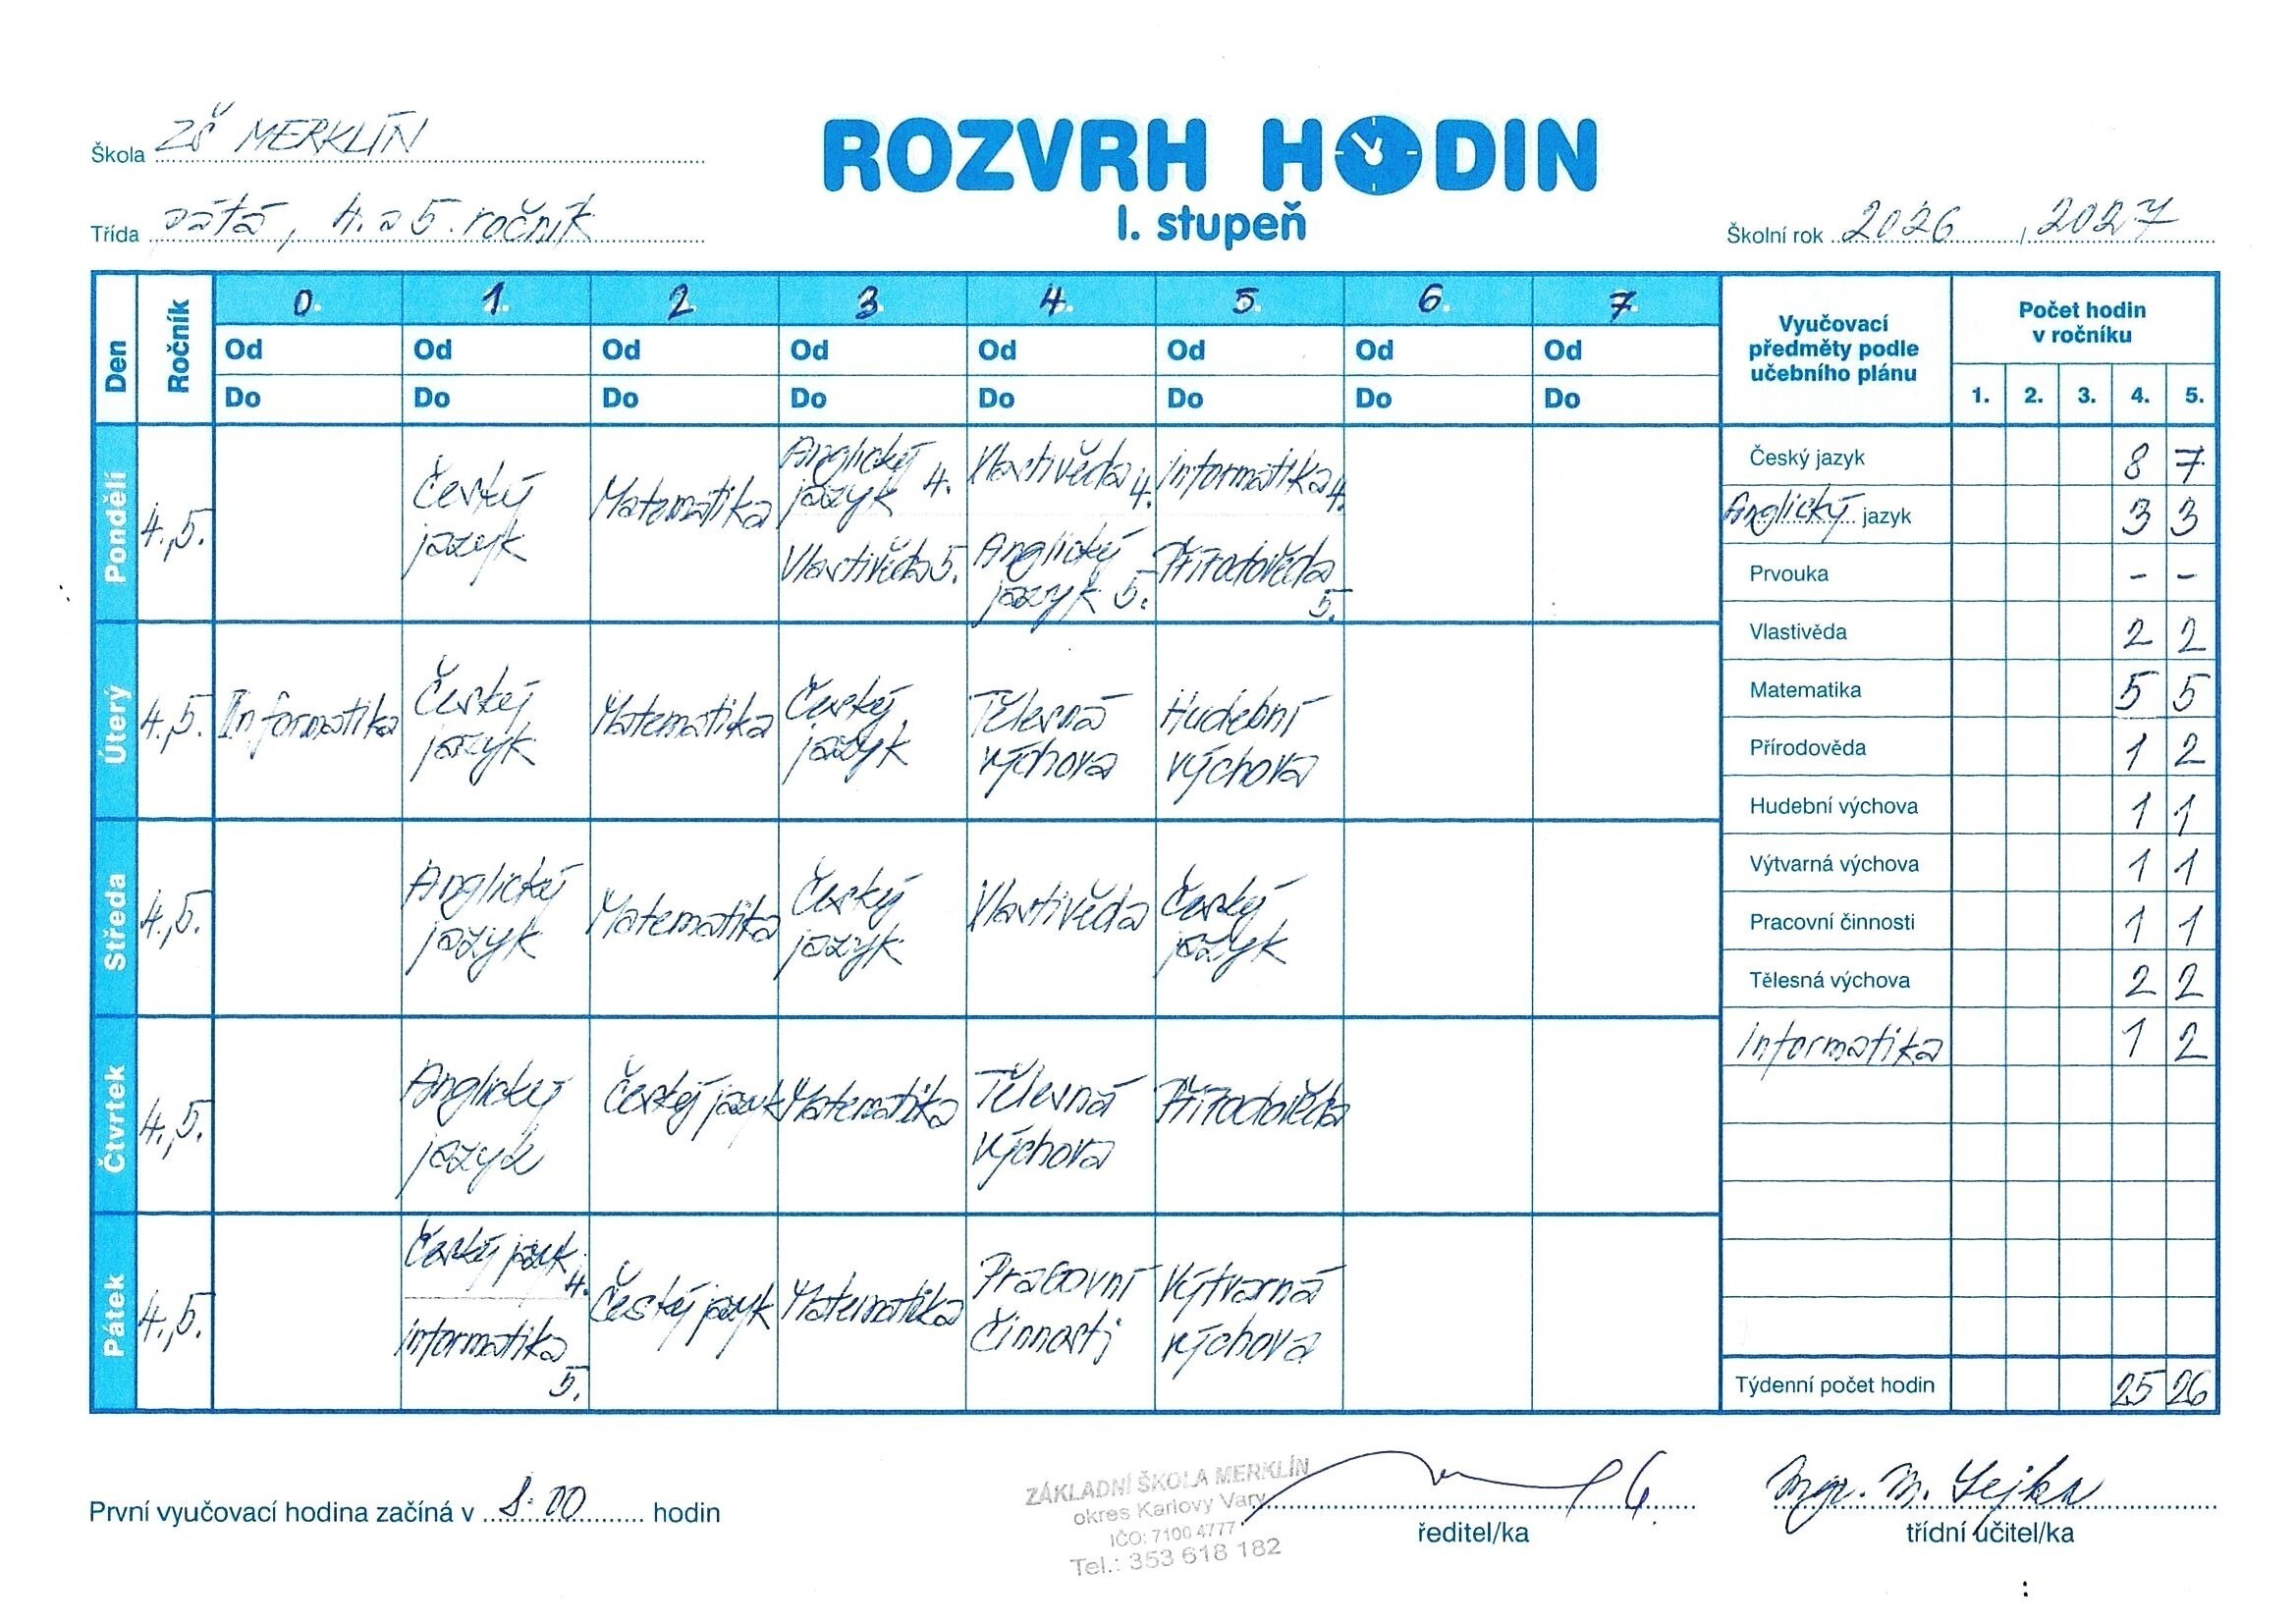 Škola ZŠ MERKLÍN
ROZVRH HODIN
I. stupeň
Třída pátá, 4. a 5. ročník
Školní rok 2026 / 2027
Den
Ročník
0. 1. 2 3 4. 5. 6. 7
Od Od Od Od Od Od Od Od
Do Do Do Do Do Do Do Do
Vyučovací
předměty podle
učebního plánu
Počet hodin
v ročníku
1. 2. 3. 4. 5.
Pondělí
4.,5.
Český
jazyk
Matematika
Anglický
jazyk 4.
Vlastivěda 5.
Vlastivěda 4.
Anglický
jazyk 5.
Informatika 4.
Přírodověda
5.
Úterý
4.,5.
Informatika
Český
jazyk
Matematika
Český
jazyk
Tělesná
výchova
Hudební
výchova
Středa
4.,5.
Anglický
jazyk
Matematika
Český
jazyk
Vlastivěda
Český
jazyk
Čtvrtek
4.,5.
Anglický
jazyk
Český jazyk
Matematika
Tělesná
výchova
Přírodověda
Pátek
4.,5.
Český jazyk
4.
informatika
5.
Český jazyk
Matematika
Pracovní
činnosti
Výtvarná
výchova
Český jazyk 8 7
Anglický jazyk 3 3
Prvouka - -
Vlastivěda 2 2
Matematika 5 5
Přírodověda 1 2
Hudební výchova 1 1
Výtvarná výchova 1 1
Pracovní činnosti 1 1
Tělesná výchova 2 2
Informatika 1 2
Týdenní počet hodin 25 26
První vyučovací hodina začíná v 8:00 hodin
ZÁKLADNÍ ŠKOLA MERKLÍN
okres Karlovy Vary
IČO: 7100 4777
Tel.: 353 618 182
ředitel/ka
Mgr. M.
třídní učitel/ka